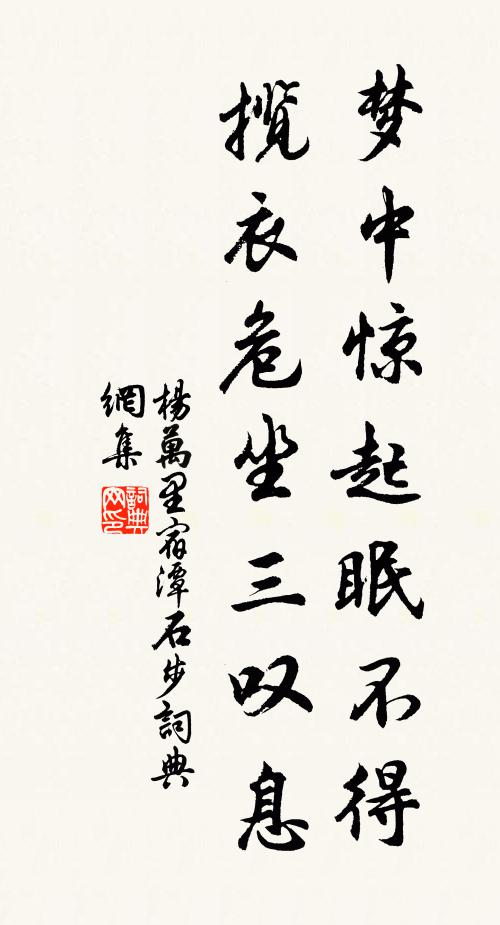 梦中惊起眠不得
揽衣危坐三叹息
楊萬里宿潭石步詞典
網集
詞典
网印